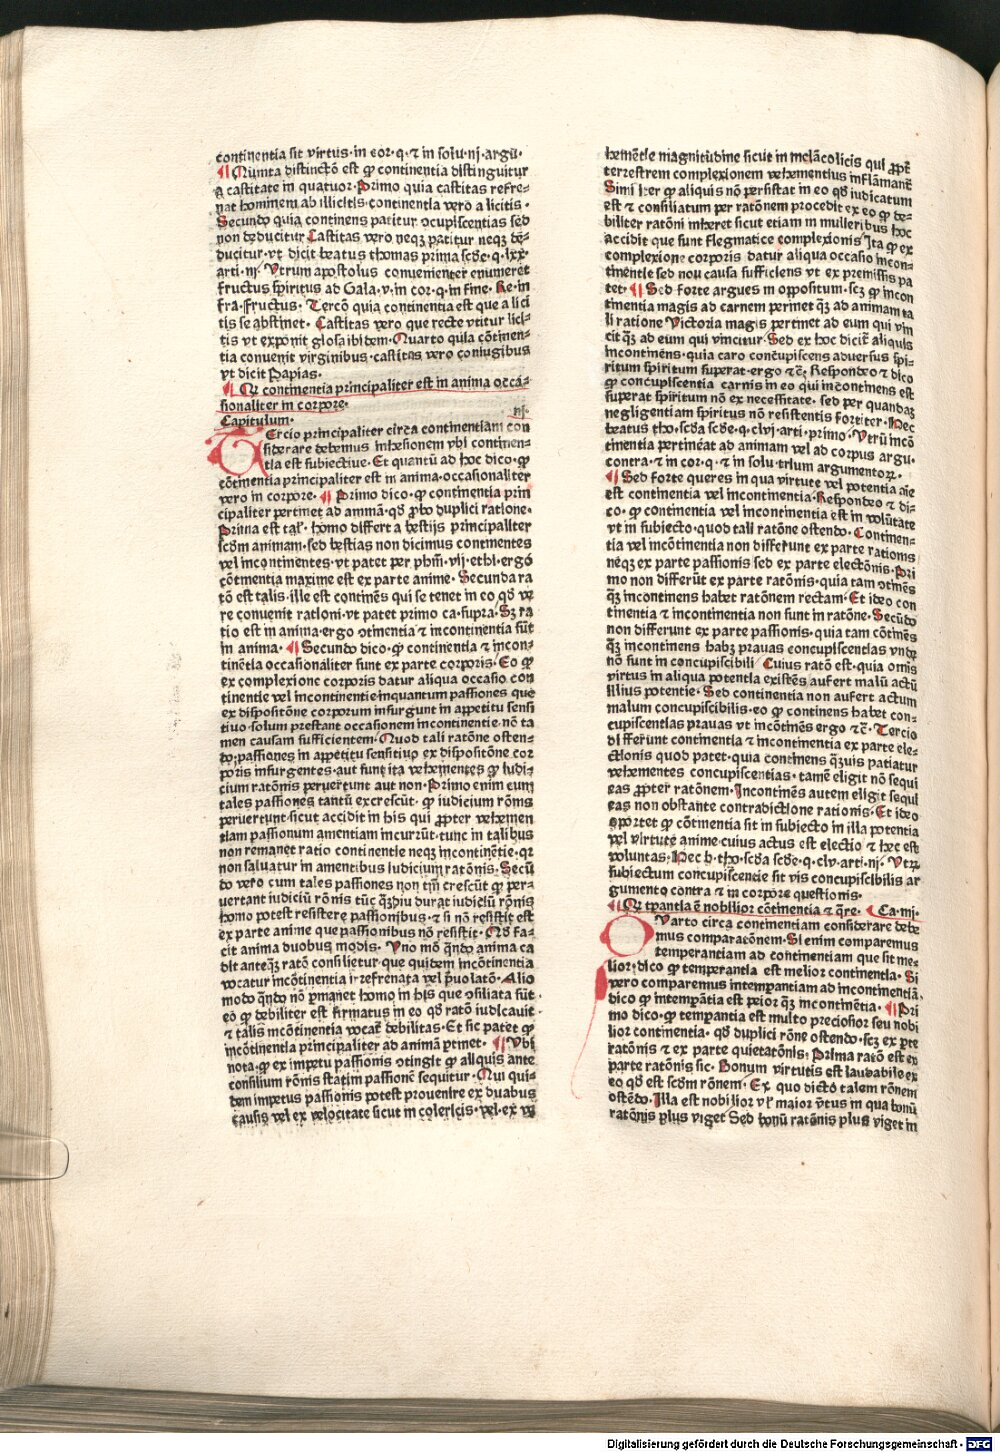 continentia sit virtus·in cor·q·⁊ in solu·nj·argu̅·
¶ Quinta distinctõ est ꝙ continentia distinguitur
a castitate in quatuor·Primo quia castitas refre⸗
nat hominem ab illicitis·continentia vero a licitis·
Secundo quia continens patitur ꝯcupiscentias sed
non deducitur Castitas vero neqꝫ patitur neqꝫ de⸗
ducitur·vt dicit beatus thomas prima scd̅e·q·lxx·
arti·nj· Vtrum apostolus conuenienter enumeret
fructus spiritus ad Gala·v·in cor·q·in fine·Re·in
fra·fructus· Tercõ quia continentia est que a lici
tis se abstinet· Castitas vero que recte vtitur lici⸗
tis vt exponit glosa ibidem·Quarto quia cõtinen⸗
tia conuenit virginibus·castitas vero coniugibus
vt dicit Papias·
¶ Qꝙ continentia principaliter est in anima occa⸗
sionaliter in corpore·
Capitulum· nj·
TErcio principaliter circa continentiam con
siderare debemus inhesionem vbi continen⸗
tia est subiectiue·Et quantu̅ ad hoc dico·ꝙ
cõtinentia principaliter est in anima·occasionaliter
vero in corpore·¶ Primo dico·ꝙ continentia prin
cipaliter pertinet ad animã·qd̅ ꝓbo duplici ratione·
Prima est tal̅· homo differt a bestijs principaliter
scd̅m animam·sed bestias non dicimus continentes
vel incontinentes·vt patet per ph̅m·vij·ethi·ergo
cõtinentia maxime est ex parte anime·Secunda ra
tõ est talis·ille est continẽs qui se tenet in eo qd̅ ve
re conuenit rationi·vt patet primo ca·supra·Sꝫ ra
tio est in anima·ergo ꝯtinentia ⁊ incontinentia su̅t
in anima·¶ Secundo dico·ꝙ continentia ⁊ incon⸗
tinẽtia occasionaliter sunt ex parte corporis·Eo ꝙ
ex complexione corporis datur aliqua occasio con
tinentie vel incontinentie·inquantum passiones que
ex dispositõne corporum insurgunt in appetitu sensi
tiuo·solum prestant occasionem incontinentie·nõ ta
men causam sufficientem·Quod tali ratõne osten⸗
do·passiones in appetitu sensitiuo ex dispositõne cor
poris insurgentes·aut sunt ita vehementes ꝙ iudi⸗
cium ratõnis peruertunt aut non·Primo enim cum
tales passiones tantu̅ excrescu̅t·ꝙ iudicium rõnis
peruertunt·sicut accidit in his qui ꝓpter vehemen
tiam passionum amentiam incurru̅t·tunc in talibus
non remanet ratio continentie neqꝫ incontinẽtie·qꝛ
non saluatur in amentibus iudicium ratõnis·Secu̅
do vero cum tales passiones non tm̅ crescu̅t ꝙ per⸗
uertant iudiciu̅ rõnis tu̅c qꝫdiu durat iudiciu̅ rõnis
homo potest resistere passionibus·⁊ si nõ resistit est
ex parte anime que passionibus nõ resistit·Qd̅ fa⸗
cit anima duobus modis· Vno mõ qn̅do anima ca
dit anteqꝫ ratõ consilietur·que quidem incõtinentia
vocatur incõtinentia irrefrenata vel p̅uolatõ·Alio
modo qn̅do nõ ꝑmanet homo in his que ꝯsiliata su̅t·
eo ꝙ debiliter est firmatus in eo qd̅ ratõ iudicauit·
⁊ talis incõtinentia vocat̅ debilitas·Et sic patet ꝙ
incõtinentia principaliter ad animã ꝑtinet·¶ Vbi
nota·ꝙ ex impetu passionis ꝯtingit ꝙ aliquis ante
consilium rõnis statim passionẽ sequitur·Qui qui⸗
dem impetus passionis potest prouenire ex duabus
causis vel ex velocitate sicut in colericis·vel·ex ve
hemẽtie magnitudine sicut in melãcolicis qui ꝓpt̅
terrestrem complexionem vehementius inflãmant̅
Simil̅r ꝙ aliquis nõ persistat in eo qd̅ iudicatum
est ⁊ consiliatum per ratõnem procedit ex eo ꝙ de⸗
biliter ratõni inheret sicut etiam in mulieribus hoc
accidit que sunt flegmatice complexionis Ita ꝙ ex
complexione corporis datur aliqua occasio incon⸗
tinentie sed non causa sufficiens vt ex premissis pa
tet·¶ Sed forte argues in oppositum·scꝫ ꝙ incon
tinentia magis ad carnem pertinet qꝫ ad animam ta
li ratione Victoria magis pertinet ad eum qui vin
cit qꝫ ad eum qui vincitur·Sed ex hoc dicit̅ aliquis
incontinens·quia caro concupiscens aduersus spi⸗
ritum spiritum superat·ergo ⁊c̅·Respondeo ⁊ dico
ꝙ concupiscentia carnis in eo qui incontinens est
superat spiritum nõ ex necessitate·sed per quandaꝫ
negligentiam spiritus nõ resistentis fortiter·Hec
beatus tho·scd̅a scd̅e·q·clvj·arti·primo·Vtru̅ incõ
tinentia pertineat ad animam vel ad corpus argu·
contra·⁊ in cor·q·⁊ in solu·trium argumentoꝝ·
¶ Sed forte queres in qua virtute vel potentia aı̅e
est continentia vel incontinentia·Respondeo ⁊ di⸗
co·ꝙ continentia vel incontinentia est in volu̅tate
vt in subiecto·quod tali ratõne ostendo·Continen⸗
tia vel incõtinentia non differunt ex parte rationis
neqꝫ ex parte passionis sed ex parte electõnis·Pri
mo non differu̅t ex parte ratõnis·quia tam ꝯtinẽs
qꝫ incontinens habet ratõnem rectam·Et ideo con
tinentia ⁊ incontinentia non sunt in ratõne·Secu̅do
non differunt ex parte passionis·quia tam cõtinẽs
qꝫ incontinens habꝫ prauas concupiscentias vnde
nõ sunt in concupiscibili Cuius ratõ est·quia om̅is
virtus in aliqua potentia existẽs aufert malu̅ actu̅
illius potentie·Sed continentia non aufert actum
malum concupiscibilis·eo ꝙ continens habet con⸗
cupiscentias prauas vt incõtinẽs ergo ⁊c̅·Tercio
differunt continentia ⁊ incontinentia ex parte ele⸗
ctionis quod patet·quia continens qꝫuis patiatur
vehementes concupiscentias·tamẽ eligit nõ sequi
eas ꝓpter ratõnem·Incontinẽs autem eligit sequi
eas non obstante contradictione rationis·Et ideo
oportet ꝙ cõtinentia sit in subiecto in illa potentia
vel virtute anime·cuius actus est electio ⁊ hec est
voluntas·Hec b·tho·scd̅a scd̅e·q·clv·arti·nj· Vtrꝫ
subiectum concupiscentie sit vis concupiscibilis ar
gumento contra ⁊ in corpore questionis·
¶ Qꝙ tꝑantia ẽ nobilior cõtinentia ⁊ q̅re· ¶ Ca·nij·
QVarto circa continentiam considerare debe
mus comparatõnem·Si enim comparemus
temperantiam ad continentiam que sit me⸗
lior·dico ꝙ temperantia est melior continentia· Si
vero comparemus intemꝑantiam ad incontinentiã·
dico ꝙ intemꝑãtia est peior qꝫ incontinẽtia·¶ Pri
mo dico·ꝙ temꝑantia est multo preciosior seu nobi
lior continentia· qd̅ duplici rõne ostendo·scꝫ ex ꝑte
ratõnis ⁊ ex parte quietatõnis· Prima ratõ est ex
parte ratõnis sic· Bonum virtutis est laudabile ex
eo qd̅ est scd̅m rõnem· Ex quo dictõ talem rõnem
ostẽdo·Illa est nobilior vl̅ maior v̅tus in qua bonu̅
ratõnis plus viget Sed bonu̅ ratõnis plus viget in
Digitalisierung gefördert durch die Deutsche Forschungsgemeinschaft - DFG